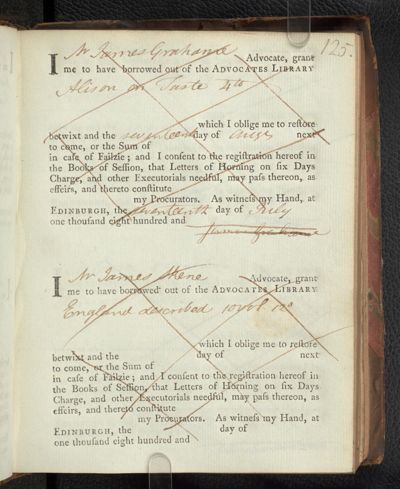 125.
I Mr James Grahame Advocate, grant
me to have borrowed out of the ADVOCATES LIBRARY
Alison on Taste 4to
which I oblige me to reſtore
betwixt and the seventeenth day of next
to come, or the Sum of
in caſe of Failzie; and I conſent to the regiſtration hereof in
the Books of Seſſion, that Letters of Horning on ſix Days
Charge, and other Executorials needful, may paſs thereon, as
effeirs, and thereto conſtitute
my Procurators. As witneſs my Hand, at
EDINBURGH, the seventeenth day of July
one thouſand eight hundred and
James Grahame
I Mr James Skene Advocate, grant
me to have borrowed out of the ADVOCATES LIBRARY
England described 10 vol 12o
which I oblige me to reſtore
betwixt and the day of next
to come, or the Sum of
in caſe of Failzie; and I conſent to the regiſtration hereof in
the Books of Seſſion, that Letters of Horning on ſix Days
Charge, and other Executorials needful, may paſs thereon, as
effeirs, and thereto conſtitute
my Procurators. As witneſs my Hand, at
EDINBURGH, the day of
one thouſand eight hundred and